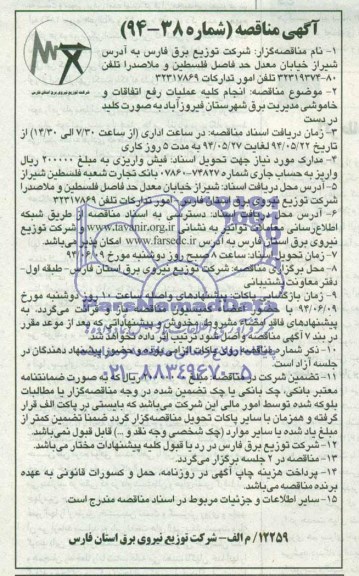 آگهی مناقصه (شماره ۳۸-۹۴)
شرکت توزیع نیروی برق استان فارس
۱- نام مناقصه‌گزار: شرکت توزیع برق فارس به آدرس
شیراز خیابان معدل حد فاصل فلسطین و ملاصدرا تلفن
۸۰-۳۲۳۱۹۳۷۴ تلفن امور تدارکات ۳۲۳۱۷۸۶۹
۲- موضوع مناقصه: انجام کلیه عملیات رفع اتفاقات و
خاموشی مدیریت برق شهرستان فیروزآباد به صورت کلید
در دست
۳- زمان دریافت اسناد مناقصه: در ساعت اداری (از ساعت ۷/۳۰ الی ۱۴/۳۰) از
تاریخ ۹۴/۰۵/۲۲ لغایت ۹۴/۰۵/۲۷ به مدت ۵ روز کاری
۴- مدارک مورد نیاز جهت تحویل اسناد: فیش واریزی به مبلغ ۲۰۰۰۰۰ ریال
واریز به حساب جاری شماره ۰۷۸۶۰-۷۳۸۲۷ بانک تجارت شعبه فلسطین شیراز
۵- آدرس محل دریافت اسناد: شیراز خیابان معدل حد فاصل فلسطین و ملاصدرا
شرکت توزیع نیروی برق استان فارس- امور تدارکات تلفن ۳۲۳۱۷۸۶۹
۶- آدرس محل دریافت اسناد: دسترسی به اسناد مناقصه از طریق شبکه
اطلاع‌رسانی معاملات توانیر به نشانی www.tavanir.org.ir و شرکت توزیع
نیروی برق استان فارس به آدرس www.farsedc.ir امکان پذیر می‌باشد
۷- زمان تحویل اسناد: ساعت ۸ صبح روز دوشنبه مورخ
۸- محل برگزاری مناقصه: شرکت توزیع نیروی برق استان فارس- طبقه اول-
دفتر معاونت پشتیبانی
۹- زمان بازگشایی پاکات: پیشنهادهای واصله ساعت ۱۰ روز دوشنبه مورخ
۹۴/۰۶/۰۹ با حضور اعضا کمیسیون مناقصه قرائت می‌گردد. به
پیشنهادهای فاقد امضاء مشروط مخدوش و پیشنهاداتی که بعد از موعد مقرر
در بند ۷ آگهی مناقصه واصل شود ترتیب اثر داده نخواهد شد
۱۰- ذکر شماره مناقصه روی پاکات الزامی بوده و حضور پیشنهاد دهندگان در
جلسه آزاد است.
۱۱- تضمین شرکت در مناقصه: مبلغ ریال که به صورت ضمانتنامه
معتبر بانکی، چک بانکی یا چک تضمین شده در وجه مناقصه‌گزار یا مطالبات
بلوکه شده توسط امور مالی این شرکت می‌باشد که بایستی در پاکت الف قرار
گرفته و همزمان با سایر پاکات تحویل مناقصه‌گزار گردد ضمناً تضمین کمتر از
مبلغ یاد شده یا سایر موارد (چک شخصی وجه نقد و ..) قابل قبول نمی‌باشد
۱۲- شرکت توزیع برق فارس در رد یا قبول کلیه پیشنهادات مختار می‌باشد
۱۳- مناقصه در ۲ جلسه برگزار می‌گردد.
۱۴- پرداخت هزینه چاپ آگهی در روزنامه، حمل و کسورات قانونی به عهده
برنده مناقصه می‌باشد.
۱۵- سایر اطلاعات و جزئیات مربوط در اسناد مناقصه مندرج است.
۱۲۲۵۹/ م الف- شرکت توزیع نیروی برق استان فارس
ParsNamadData
۰۲۱-۸۸۳۴۹۶۷۰-۵